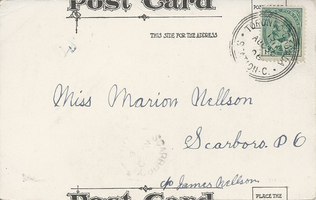 Post Card
THIS SIDE FOR THE ADDRESS
TORONTO
Miss Marion Nellson
Scarboro P 6
c/o James Nellson
Post Card
PLACE THE